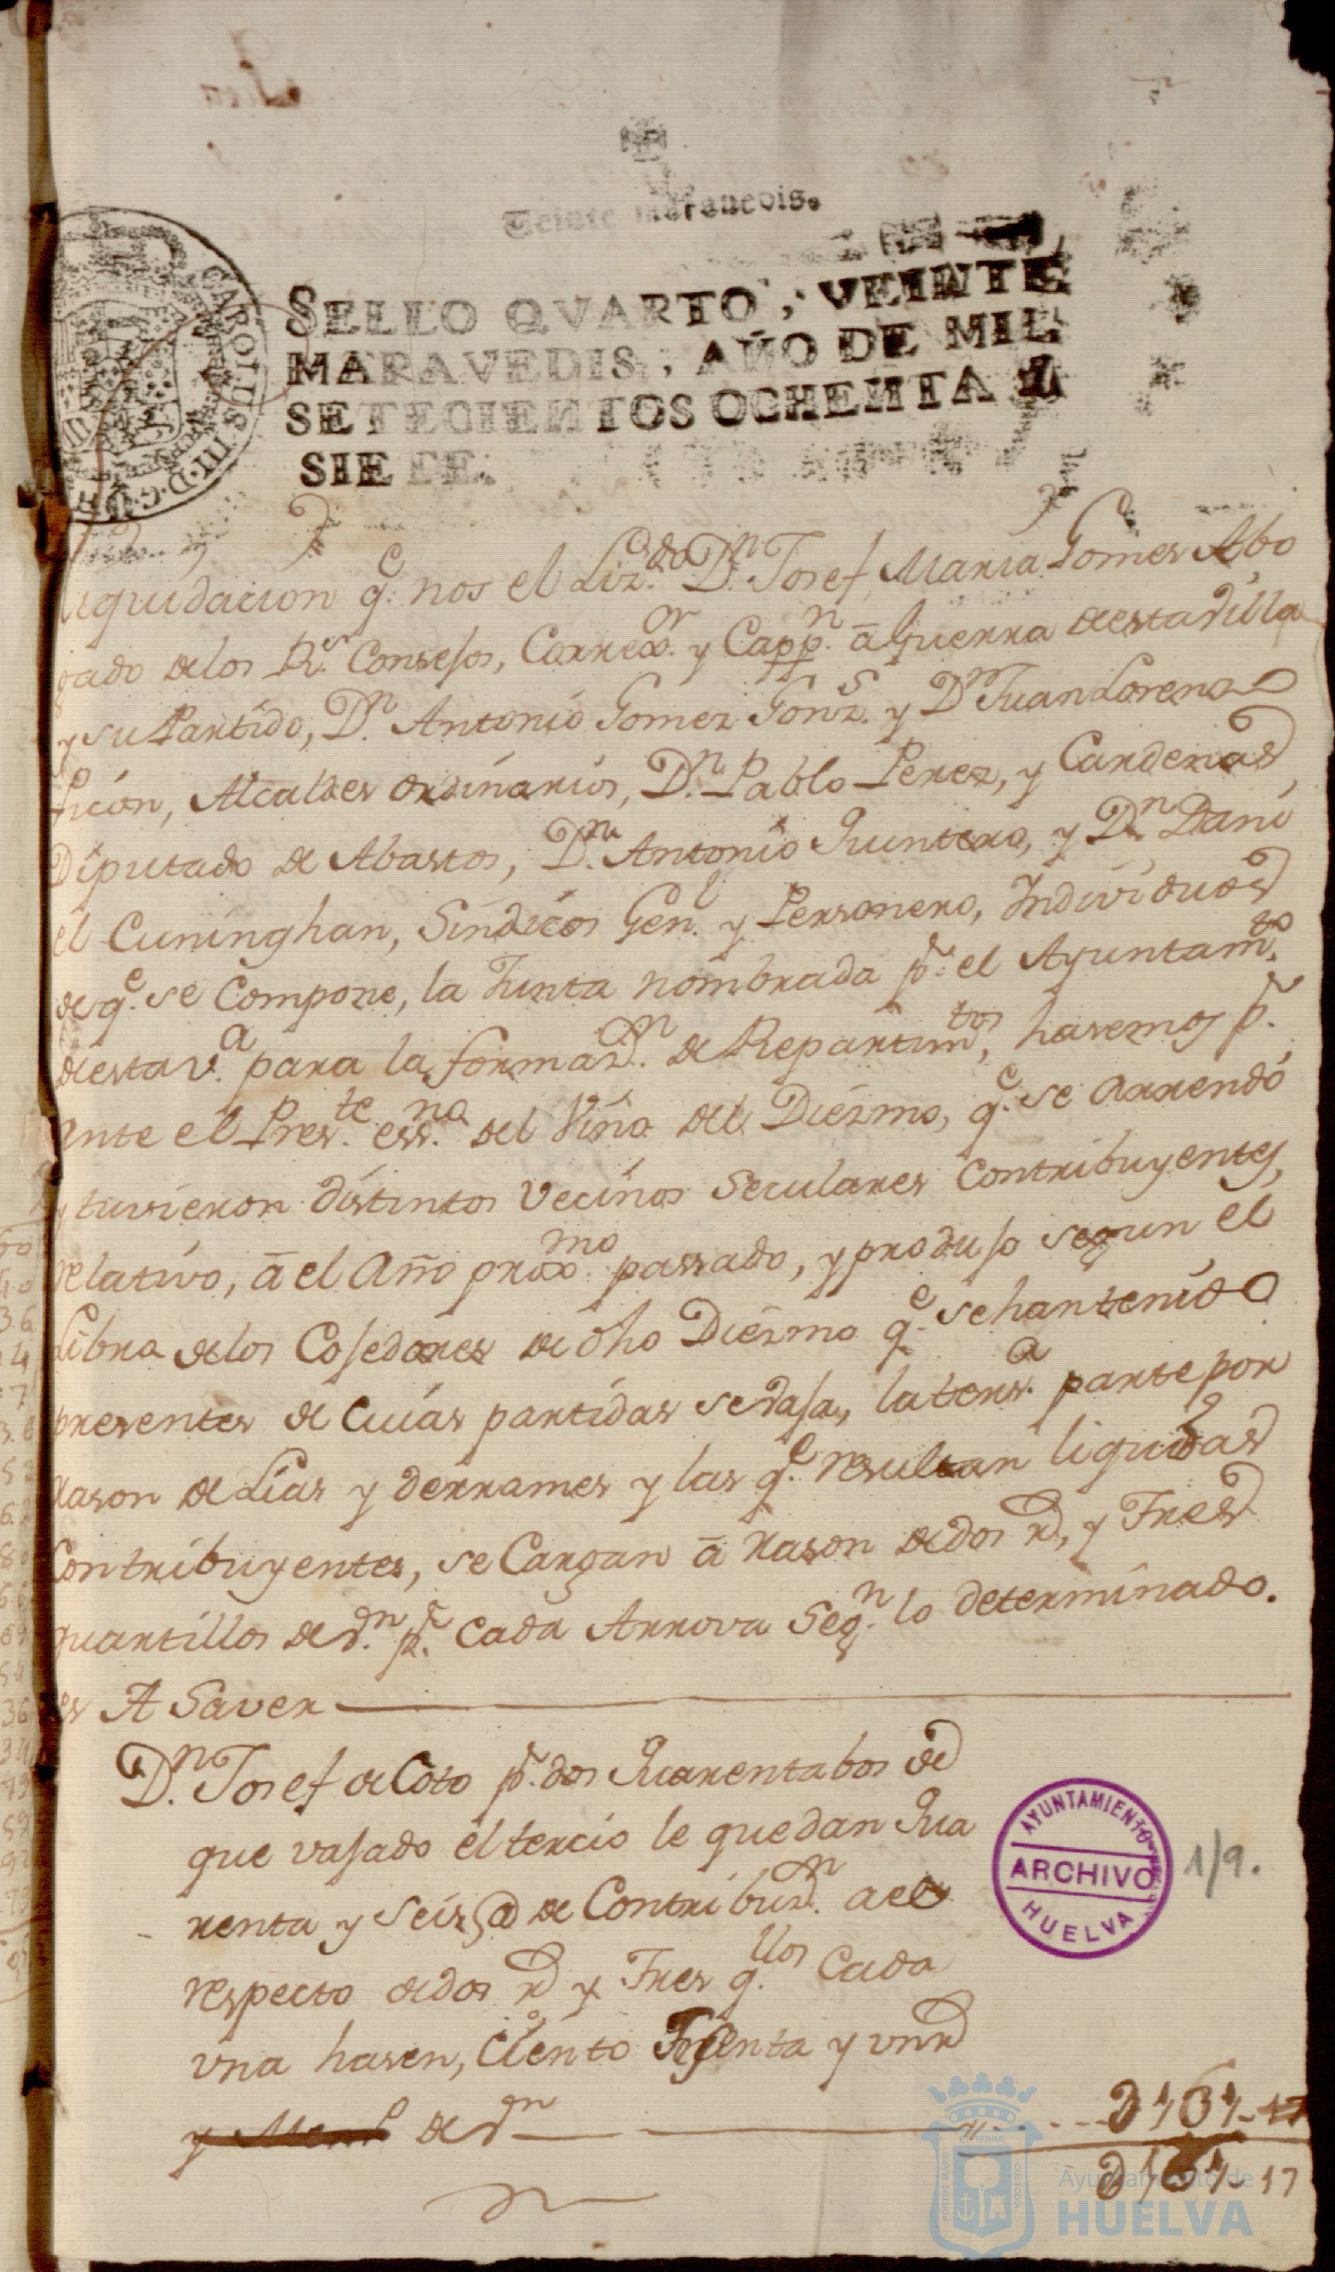 Veinte maravedis.
SELLO QVARTO, VEINTE
MARAVEDIS, AÑO DE MIL
SETECIENTOS OCHENTA Y
SIETE.
CAROLUS III D.G.
Liquidacion q.e nos el Liz.do D.n Josef Maria Gomez Abo
gado de los R.s Consejos, Correx.or y Capp.n a Guerra de esta Villa
y su Partido, D.n Antonio Gomez Gonz.s y D.n Juan Lorenzo
Picon, Alcaldes ordinarios, D.n Pablo Perez, y Cardenas,
Diputado de Abastos, D.n Antonio Quintero, y D.n Dani
el Cuninghan, Sindicos Gen.l y Personero, Individuos
de q.e se Compone, la Junta nombrada p.r el Ayuntam.to
de esta v.a para la formaz.n de Repartim.tos, hasemos p.r
ante el Pres.te ess.no del Vino del Diezmo, q.e se arrendó
y tuvieron distintos Vecinos Seculares Contribuyentes,
relativo, a el Año prox.mo passado, y produjo segun el
Libro de los Cosedores de dho Diezmo q.e se han tenido
presentes de cuias partidas se vaja, la terz.a parte por
rason de Lias y derrames y las q.e resultan liquidas
Contribuyentes, se Cargan a rason de dos r.s, y Tres
quartillos de v.n p.r cada Arrova Seg.n lo determinado.
es A Saver
D.n Josef de Coto p.r dos Quarentabos de
que vajado el tercio le quedan Qua
renta y seis @ de Contribuz.n a el
respecto de dos r.s y Tres q.llos Cada
una hasen, Ciento Treinta y un r.s
de v.n
0131-17
0131-17
AYUNTAMIENTO
ARCHIVO
HUELVA
1/9.
Ayuntamiento de
HUELVA